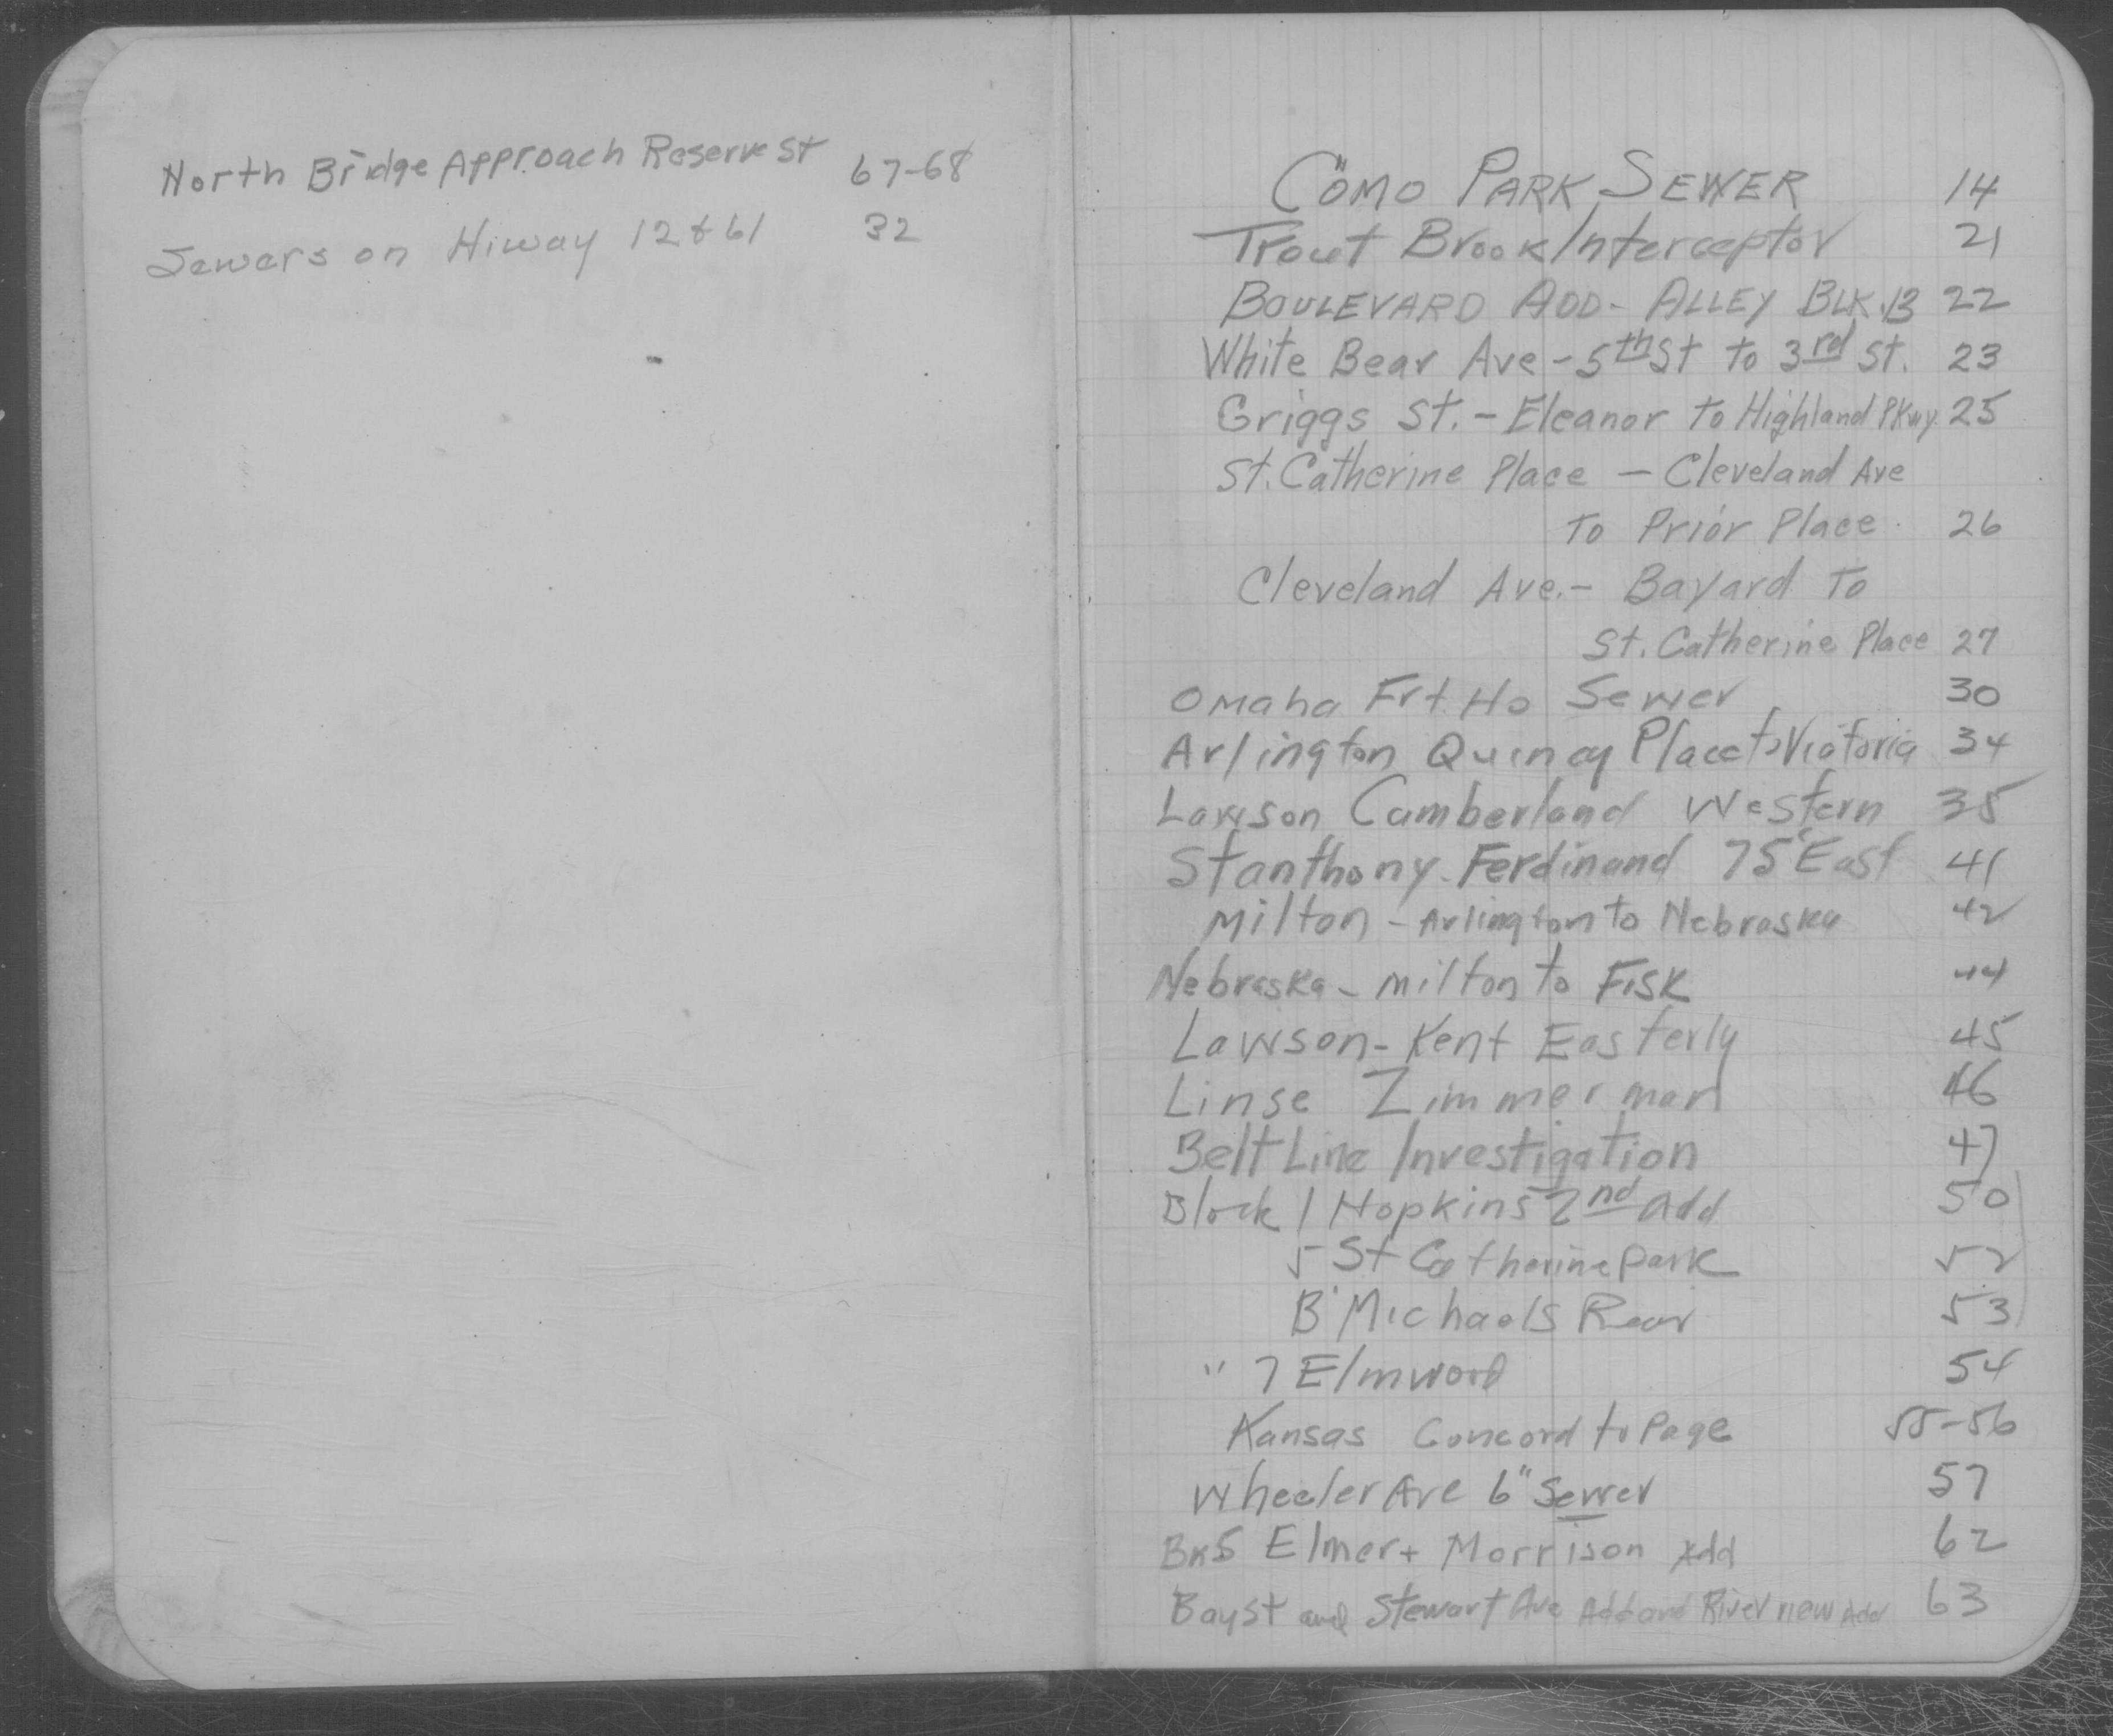 North Bridge Approach Reserve St 67-68
Sewers on Hiway 12 & 61 32
COMO PARK SEWER 14
Trout Brook Interceptor 21
BOULEVARD ADD- ALLEY BLK.13 22
White Bear Ave - 5th St To 3rd St. 23
Griggs St. - Eleanor To Highland Pkwy 25
St. Catherine Place - Cleveland Ave
To Prior Place 26
Cleveland Ave. - Bayard To
St. Catherine Place 27
Omaha Frt Ho Sewer 30
Arlington Quincy Place to Victoria 34
Lawson Cumberland Western 35
St anthony. Ferdinand 75' East 41
Milton - Arlington to Nebraska 42
Nebraska - Milton to Fisk 44
Lawson - Kent Easterly 45
Linse Zimmerman 46
Belt Line Investigation 47
Block 1 Hopkins 2nd Add 50
5 St Catherine Park 52
B Michaels Rear 53
" 7 Elmwood 54
Kansas Concord to Page 55-56
Wheeler Ave 6" Sewer 57
Bk5 Elmer + Morrison Add 62
Bay St and Stewart Ave Add and River new Add 63